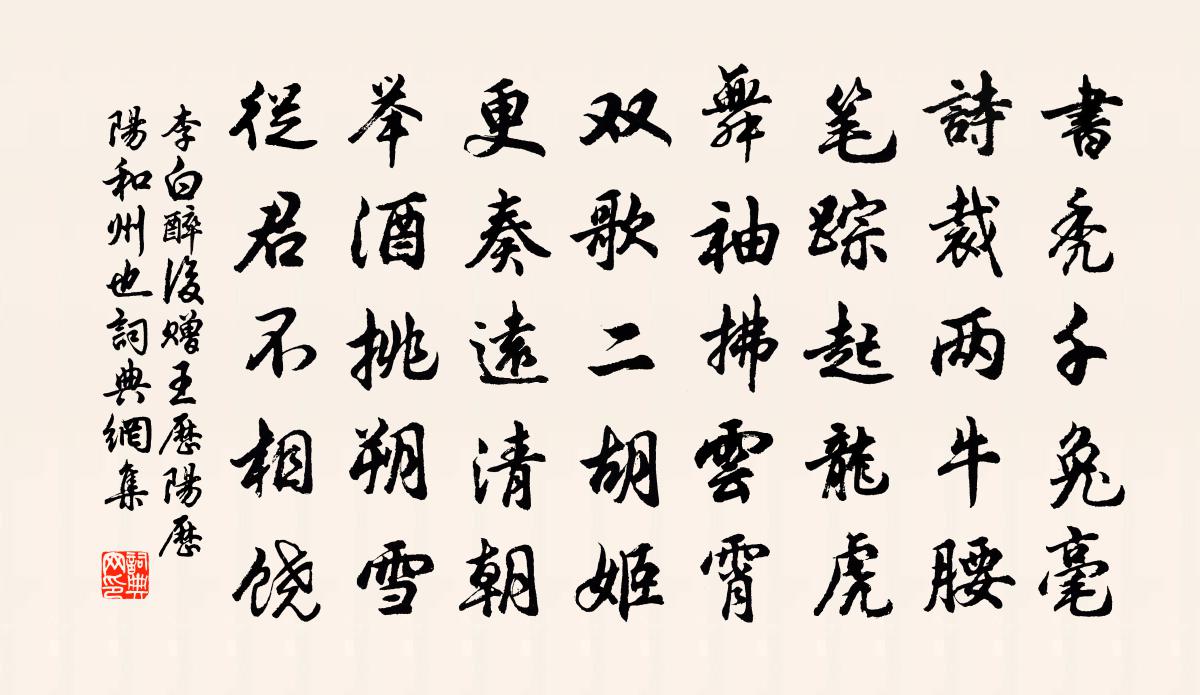 書禿千兔毫
詩裁两牛腰
笔踪起龍虎
舞袖拂雲霄
双歌二胡姬
更奏遠清朝
举酒挑朔雪
從君不相饶
李白醉後贈王歷陽歷
陽和州也詞典網集
詞典网印